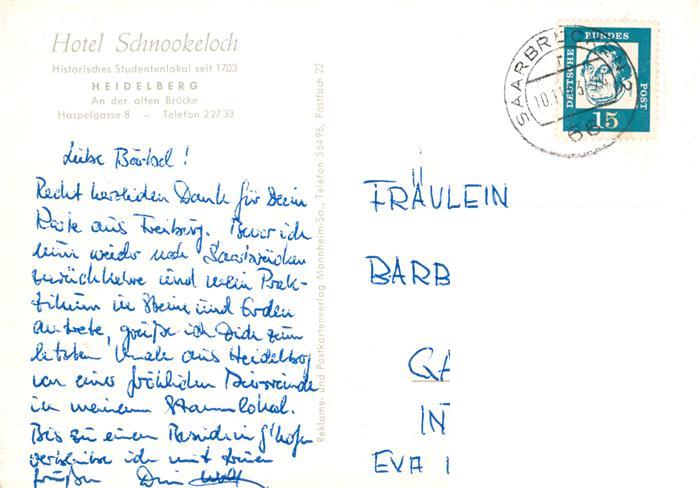 Hotel Schnookeloch
Historisches Studentenlokal seit 1703
HEIDELBERG
An der alten Brücke
Haspelgasse 8 — Telefon 22733
Reklame- und Postkartenverlag Mannheim-Sa., Telefon 56496, Postfach 22
SAARBRÜCKEN 2
DEUTSCHE BUNDES POST
15
Liebe Bärbel!
Recht herzlichen Dank für Deine
Karte aus Freiburg. Bevor ich
nun wieder nach Saarbrücken
zurückkehre und mein Prak-
tikum in Steine und Erden
antrete, grüße ich Dich zum
letzten Male aus Heidelberg
von einer fröhlichen Bierrunde
in meinem Stammlokal.
Bis zu einem
verbleibe ich mit
Grüßen Dein Wolf
FRÄULEIN
BARB
GA
IN
EVA